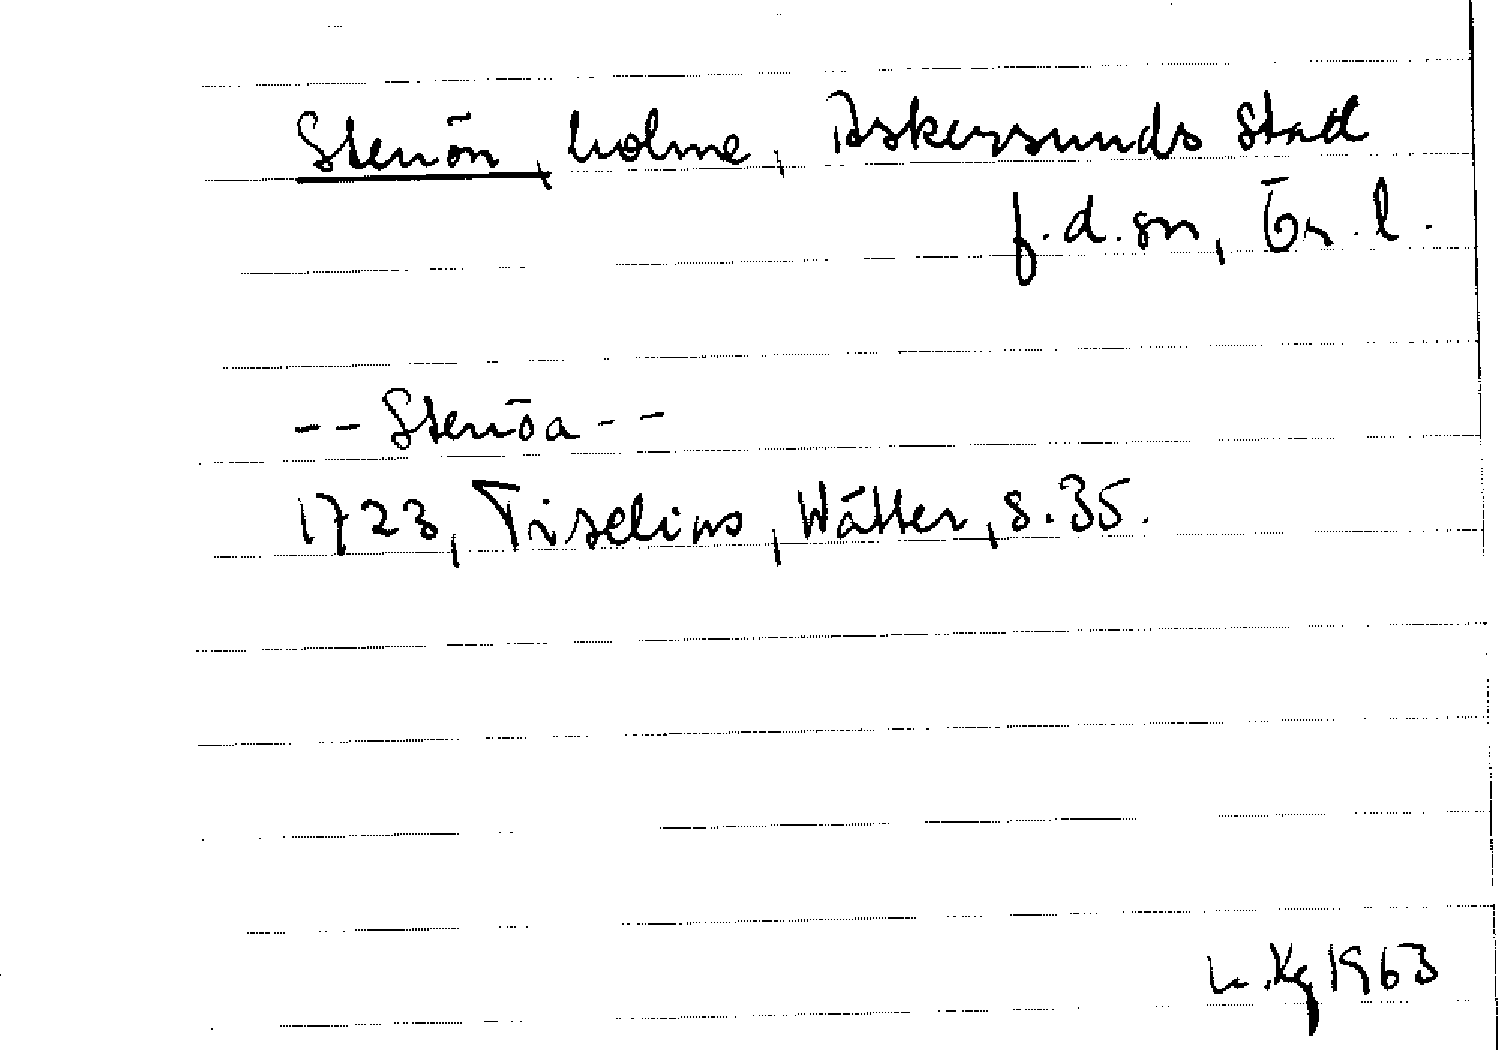 Stenön, holme, Askersunds stad
f.d. sn, Ör. l.
-- Stenöa --
1723, Tiselius, Wätter, s. 35.
L. Kg 1963